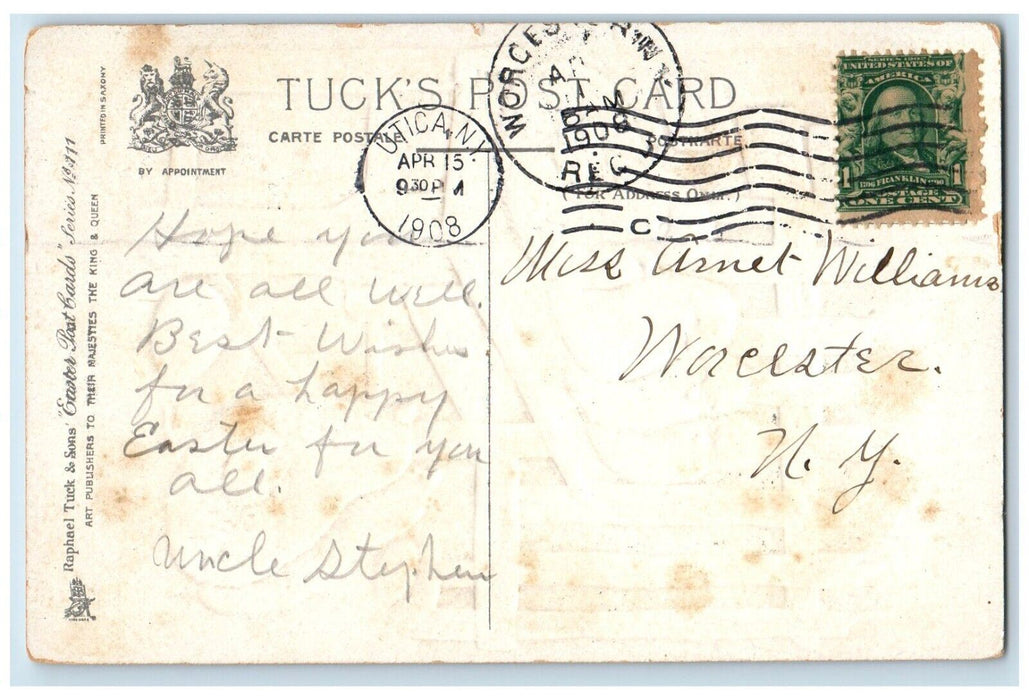 TUCK'S POST CARD
CARTE POSTALE
POSTKARTE
(FOR ADDRESS ONLY.)
BY APPOINTMENT
PRINTED IN SAXONY
Raphael Tuck & Sons' "Easter Post Cards" Series No. 111
ART PUBLISHERS TO THEIR MAJESTIES THE KING & QUEEN
UTICA, N.Y.
APR 15
9 30 P M
1908
WORCESTER
6 AM
1908
REC'
C
SERIES 1902
UNITED STATES OF
AMERICA
1 FRANKLIN 1
POSTAGE
ONE CENT
Hope you
are all well.
Best Wishes
for a happy
Easter for you
all.
Uncle Stephen
Miss Arnet Williams
Worcester.
N. Y.